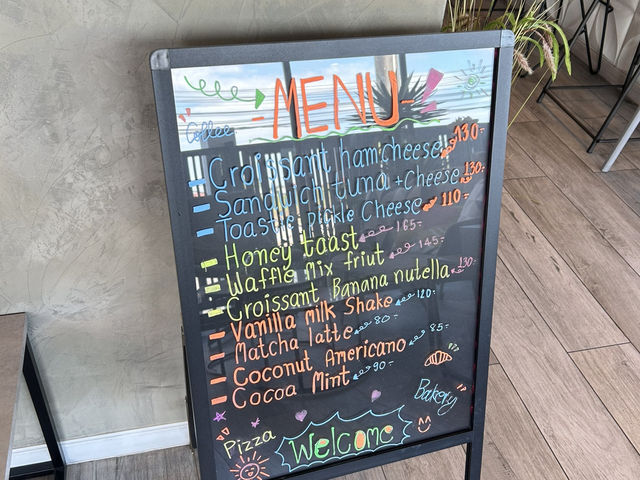 -MENU-
Coffee
- Croissant ham cheese 130.-
- Sandwich tuna + Cheese 130.-
- Toastie Pickle Cheese 110.-
- Honey toast 165.-
- Waffle Mix friut 145.-
- Croissant Banana nutella 130.-
- Vanilla milk Shake 120.-
- Matcha latte 80.-
- Coconut Americano 85.-
- Cocoa Mint 90.-
Bakery
Pizza
Welcome